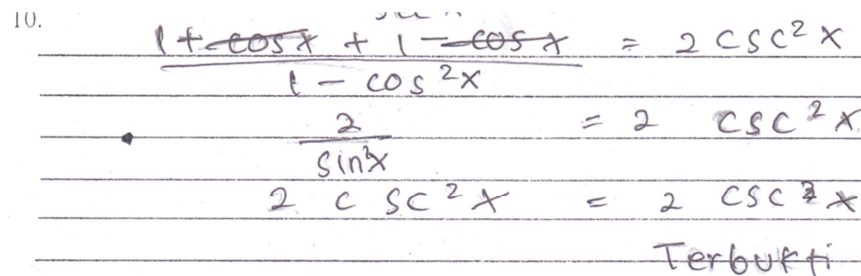 10.
1 + cos x + 1 - cos x / 1 - cos²x = 2 csc²x
2 / sin²x = 2 csc²x
2 csc²x = 2 csc²x
Terbukti